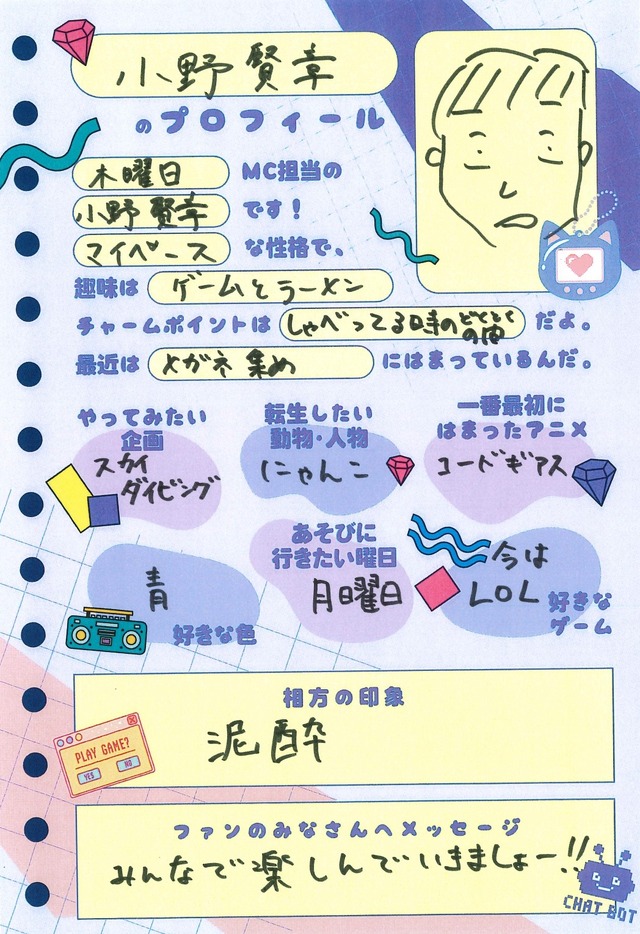 小野賢章
のプロフィール
木曜日 MC担当の
小野賢章 です！
マイペース な性格で、
趣味は ゲームとラーメン
チャームポイントは しゃべってる時のどくとくの間 だよ。
最近は メガネ集め にはまっているんだ。
やってみたい
企画
スカイ
ダイビング
転生したい
動物・人物
にゃんこ
一番最初に
はまったアニメ
コードギアス
青
好きな色
あそびに
行きたい曜日
月曜日
今は
LOL
好きな
ゲーム
相方の印象
泥酔
PLAY GAME?
YES NO
ファンのみなさんへメッセージ
みんなで楽しんでいきましょー!!
CHAT BOT